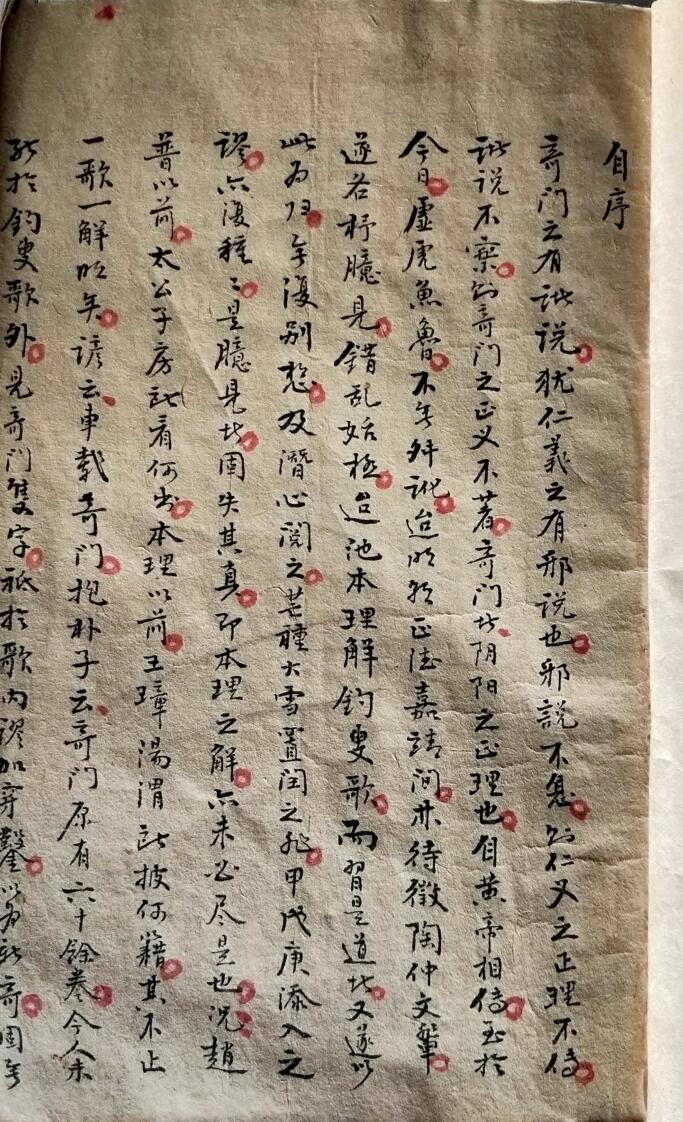 自序
奇门之有訛说犹仁義之有邪说也邪説不息则仁义之正理不传
訛说不察则奇门之正义不著奇门者阴阳之正理也自黄帝相传至於
今日虚虎魚魯不无舛訛迨明朝正德嘉靖间林待徵陶仲文輩
遂各杼臆見錯乱始極迨池本理解釣叟歌而習是道者又遂以
此为归矣復别愁及潛心閲之芒種大雪置闰之非甲戊庚添入之
謬亦復種〻是臆見者固失其真即本理之解亦未必尽是也况趙
普以前太公子房所看何书本理以前王璋湯渭所披何籍其不止
一歌一解明矣諺云車载奇门抱朴子云奇门原有六十餘卷今人未
於釣叟歌外見奇门隻字秪於歌内謬加穿鑿以为新奇固无